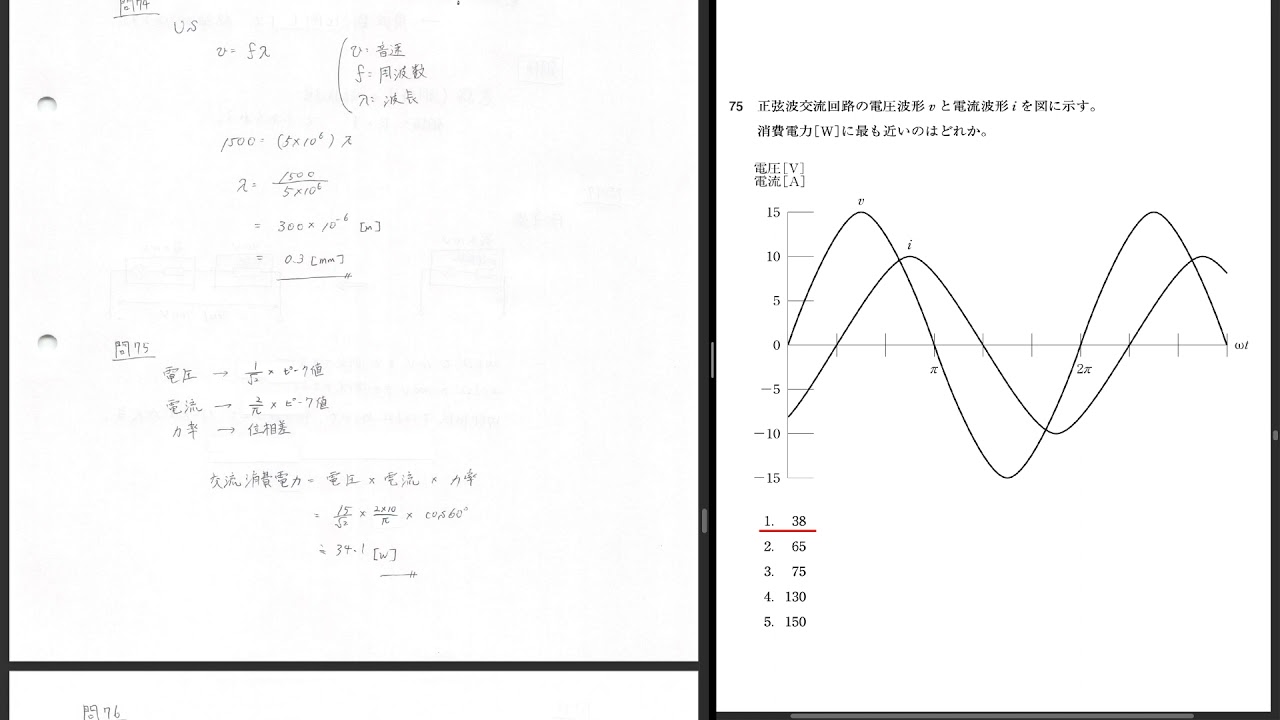 問74
US
v = fλ
v = 音速
f = 周波数
λ = 波長
1500 = (5×10⁶) λ
λ = 1500 / 5×10⁶
= 300 × 10⁻⁶ [m]
= 0.3 [mm]
問75
電圧 → 1/√2 × ピーク値
電流 → 2/π × ピーク値
力率 → 位相差
交流消費電力 = 電圧 × 電流 × 力率
= 15/√2 × 2×10/π × cos60°
≒ 34.1 [W]
問76
75 正弦波交流回路の電圧波形 v と電流波形 i を図に示す。
消費電力[W]に最も近いのはどれか。
電圧[V]
電流[A]
v
i
15
10
5
0
−5
−10
−15
π
2π
ωt
1. 38
2. 65
3. 75
4. 130
5. 150